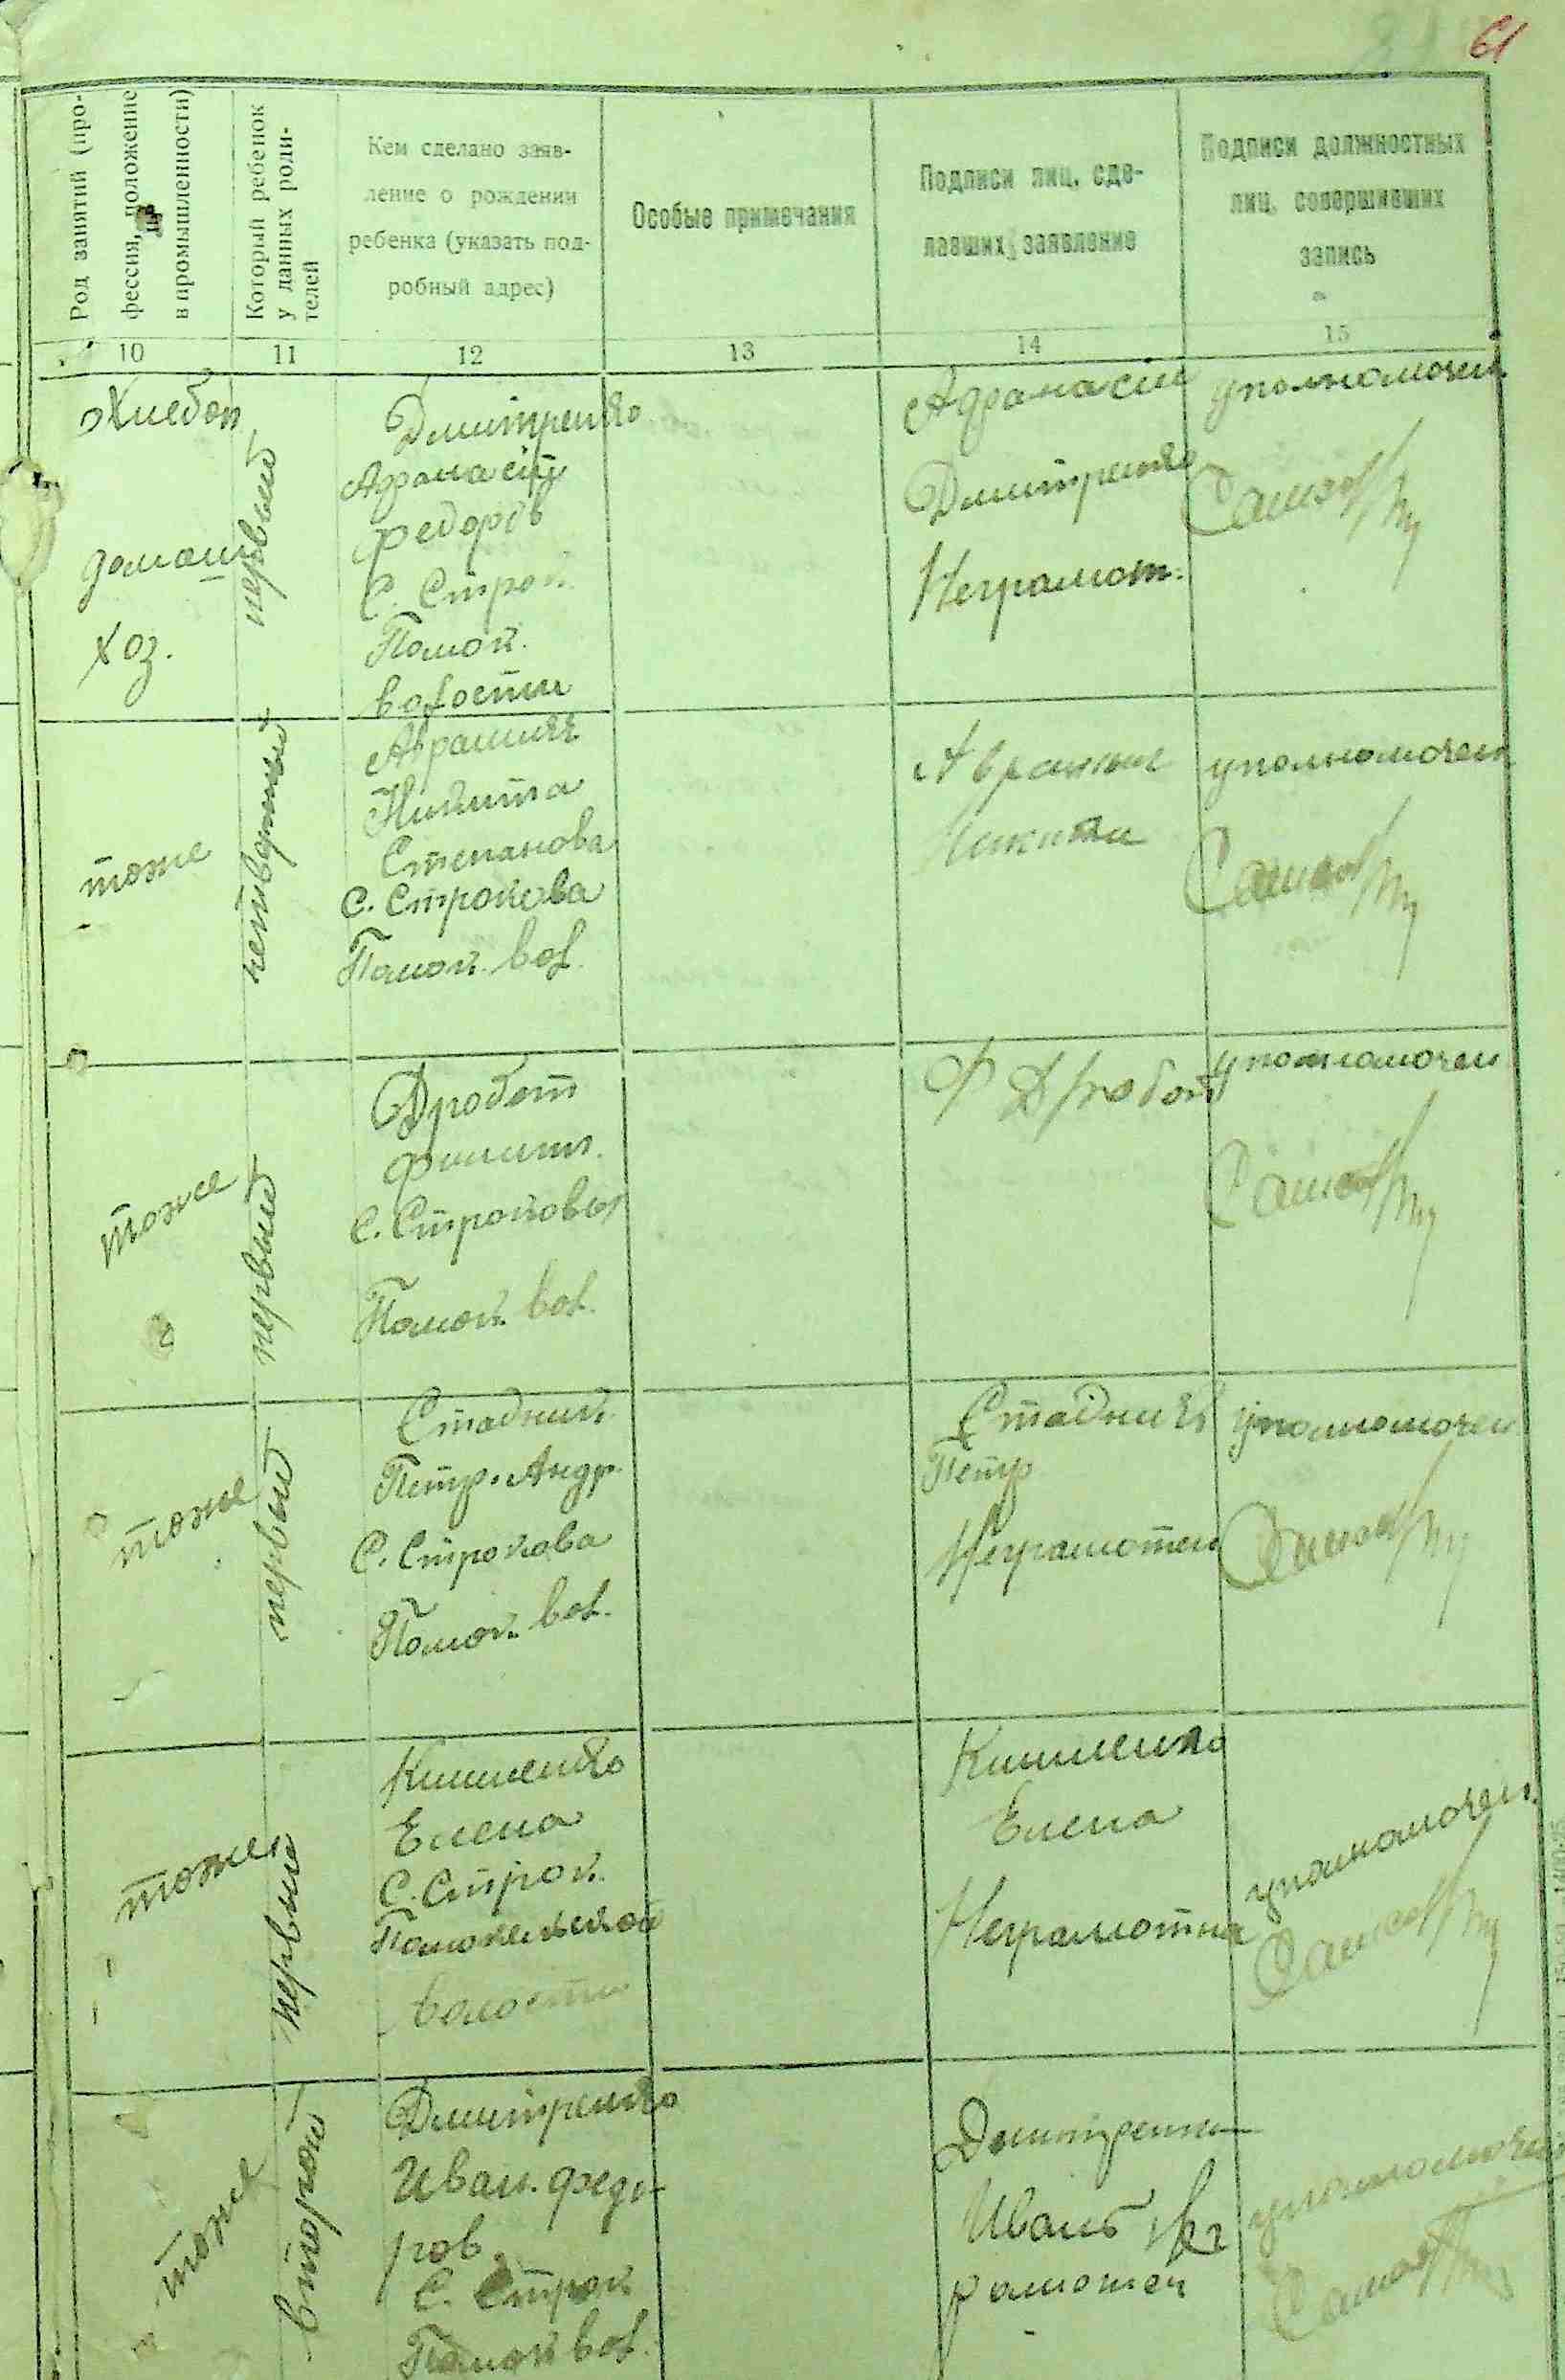 61
Род занятий (про-
фессия, положение
в промышленности)
Который ребенок
у данных роди-
телей
Кем сделано заяв-
ление о рождении
ребенка (указать под-
робный адрес)
Особые примечания
Подписи лиц, сде-
лавших заявление
Подписи должностных
лиц, совершивших
запись
10
11
12
13
14
15
Хлебоп
домаш
хоз.
первый
Дмитренко
Афанасий
Федоров
С. Строк.
Помок.
волости
Афанасии
Дмитренко
Неграмот.
уполномочен
тоже
четвертый
Аврамия
Никита
Степанова
С. Строкова
Помок. вол.
Никита
уполномочен
тоже
первый
Дробот
Филип.
С. Строковы
Помок. вол.
Ф Дробот
уполномочен
тоже
первый
Стадник
Петр. Андр.
С. Строкова
Помок. вол.
Стадник
Петр
Неграмотен
уполномочен
тоже
первый
Елена
С. Строк.
волости
Елена
Неграмотна
уполномочен
тоже
второй
Дмитренко
Иван. Федо-
ров
С. Строк
Помок вол.
Дмитренко
Иванъ
рамотен
уполномочен